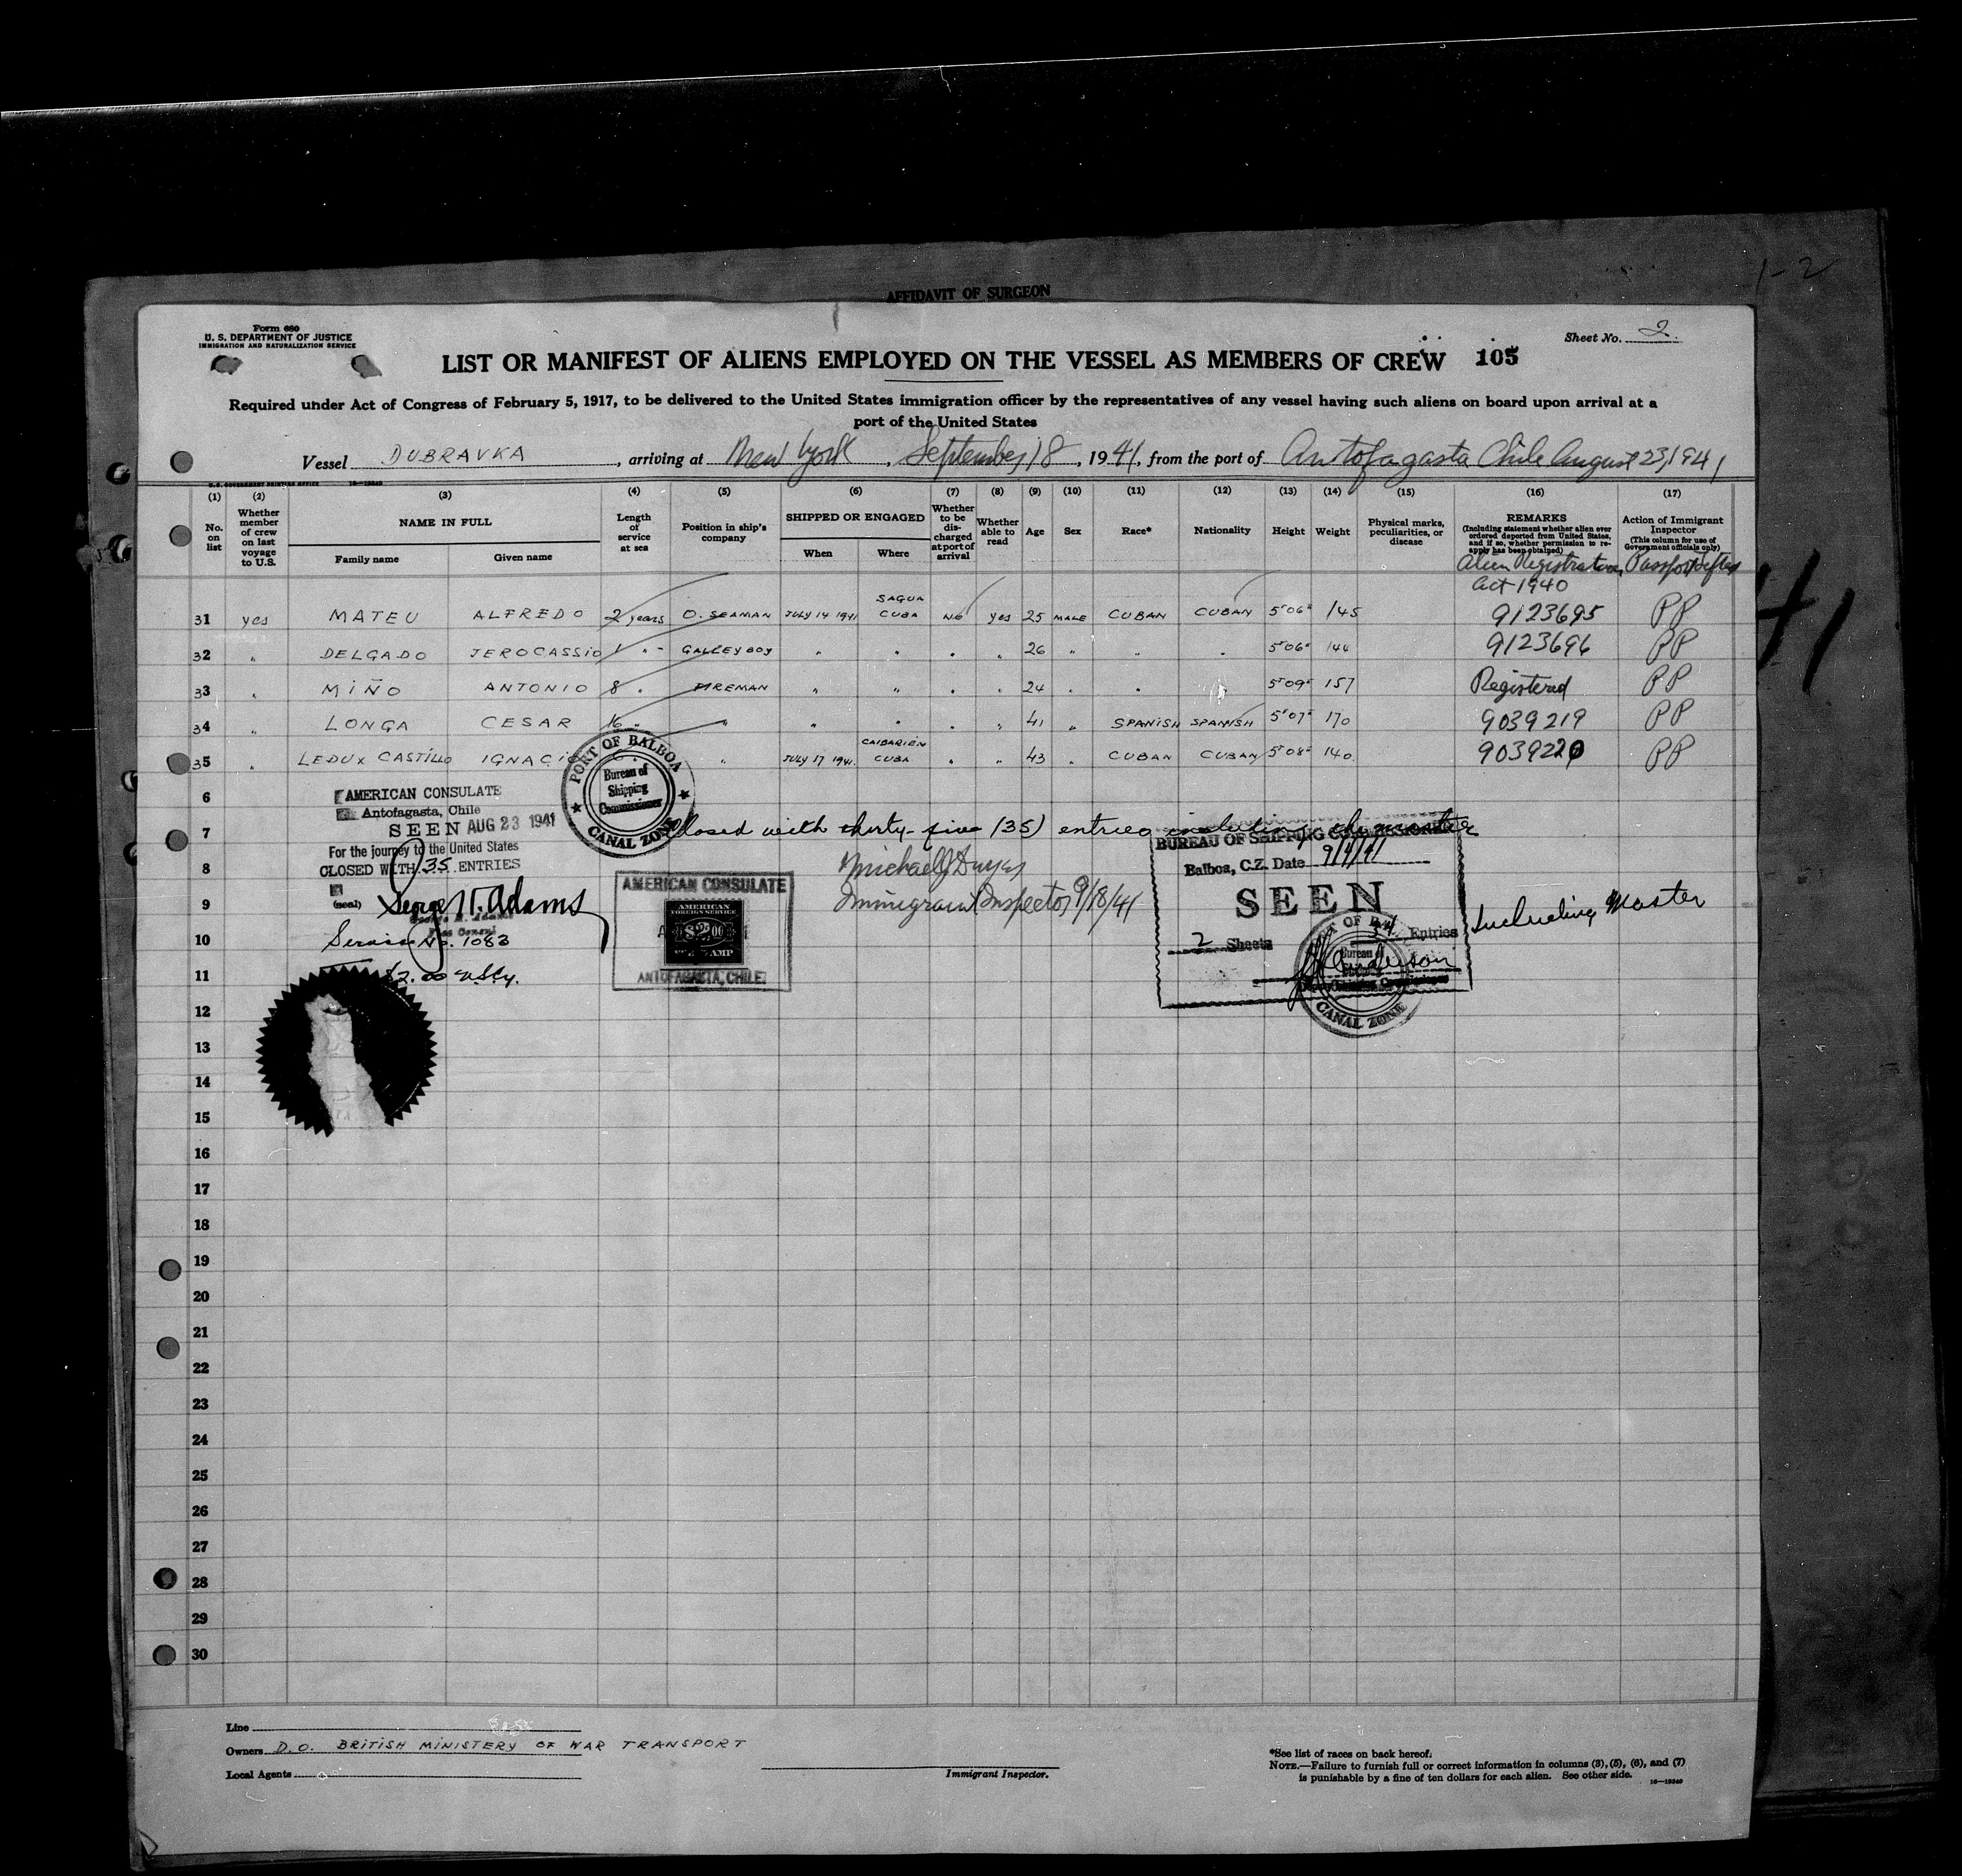 1-2
AFFIDAVIT OF SURGEON
Form 680
U. S. DEPARTMENT OF JUSTICE
IMMIGRATION AND NATURALIZATION SERVICE
Sheet No. 2.
LIST OR MANIFEST OF ALIENS EMPLOYED ON THE VESSEL AS MEMBERS OF CREW 105
Required under Act of Congress of February 5, 1917, to be delivered to the United States immigration officer by the representatives of any vessel having such aliens on board upon arrival at a
port of the United States
Vessel DUBRAVKA, arriving at New York, September 18, 1941, from the port of Antofagasta Chile August 23, 1941
U.S. GOVERNMENT PRINTING OFFICE 16-19340
(1) (2) (3) (4) (5) (6) (7) (8) (9) (10) (11) (12) (13) (14) (15) (16) (17)
No. on list
Whether member of crew on last voyage to U.S.
NAME IN FULL
Family name Given name
Length of service at sea
Position in ship's company
SHIPPED OR ENGAGED
When Where
Whether to be discharged at port of arrival
Whether able to read
Age
Sex
Race*
Nationality
Height
Weight
Physical marks, peculiarities, or disease
REMARKS
(Including statement whether alien ever ordered deported from United States, and if so, whether permission to re-apply has been obtained)
Action of Immigrant Inspector
(This column for use of Government officials only)
Alien Registration
Act 1940
31 yes MATEU ALFREDO 2 years O. SEAMAN JULY 14 1941 SAGUA CUBA No yes 25 MALE CUBAN CUBAN 5'06" 145 9123695 PP
32 " DELGADO JEROCASSIO 1 " - GALLEY BOY " " " " 26 " " " 5'06" 144 9123696 PP
33 " MIÑO ANTONIO 8 " FIREMAN " " " " 24 " " " 5'09" 157 Registered PP
34 " LONGA CESAR 16 " " " " " " 41 " SPANISH SPANISH 5'07" 170 9039219 PP
35 " LEDUX CASTILLO IGNACIO " JULY 17 1941. CAIBARIEN CUBA " " 43 " CUBAN CUBAN 5'08" 140 9039220 PP
41
PORT OF BALBOA
Bureau of
Shipping
Commissioner
CANAL ZONE
6
AMERICAN CONSULATE
Antofagasta, Chile
7
SEEN AUG 23 1941
For the journey to the United States
8
CLOSED WITH 35 ENTRIES
(seal)
9
George H. Adams
Vice Consul
10
Service No. 1083
11
$2.00 
Closed with thirty-five (35) entries including the master
Immigrant Inspector 9/18/41
AMERICAN CONSULATE
AMERICAN
FOREIGN SERVICE
$2.00
FEE STAMP
ANTOFAGASTA, CHILE
BUREAU OF SHIPPING COMMISSIONER
Balboa, C.Z. Date 9/4/41
SEEN
2 Sheets 34 Entries
Including Master
PORT OF BALBOA
Bureau of
CANAL ZONE
12
13
14
15
16
17
18
19
20
21
22
23
24
25
26
27
28
29
30
Line
Owners D.O. BRITISH MINISTERY OF WAR TRANSPORT
Local Agents
Immigrant Inspector.
*See list of races on back hereof.
NOTE.—Failure to furnish full or correct information in columns (3), (5), (6), and (7)
is punishable by a fine of ten dollars for each alien. See other side. 16—19340